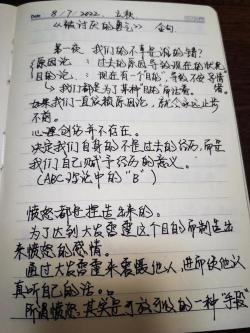 Date 8/7.2022. 立秋
《被讨厌的勇气》 金句
第一夜 我们的不幸是谁的错?
原因论:过去的原因导致现在的状况
目的论:现在有一个目的,导致不安等情
↳我们都是为了某种"目的"而活着. 绪
如果我们一直依赖原因论,就会永远止步
不前。
心理创伤并不存在。
决定我们自身的不是过去的经历,而是
我们自己赋予经历的意义。
(ABC理论中的"B")
愤怒都是捏造出来的。
为了达到大发雷霆这个目的而制造出
来愤怒的感情。
通过大发雷霆来震慑他人,进而使他认
真听自己的话。
所谓愤怒其实是可放可收的一种"手段"